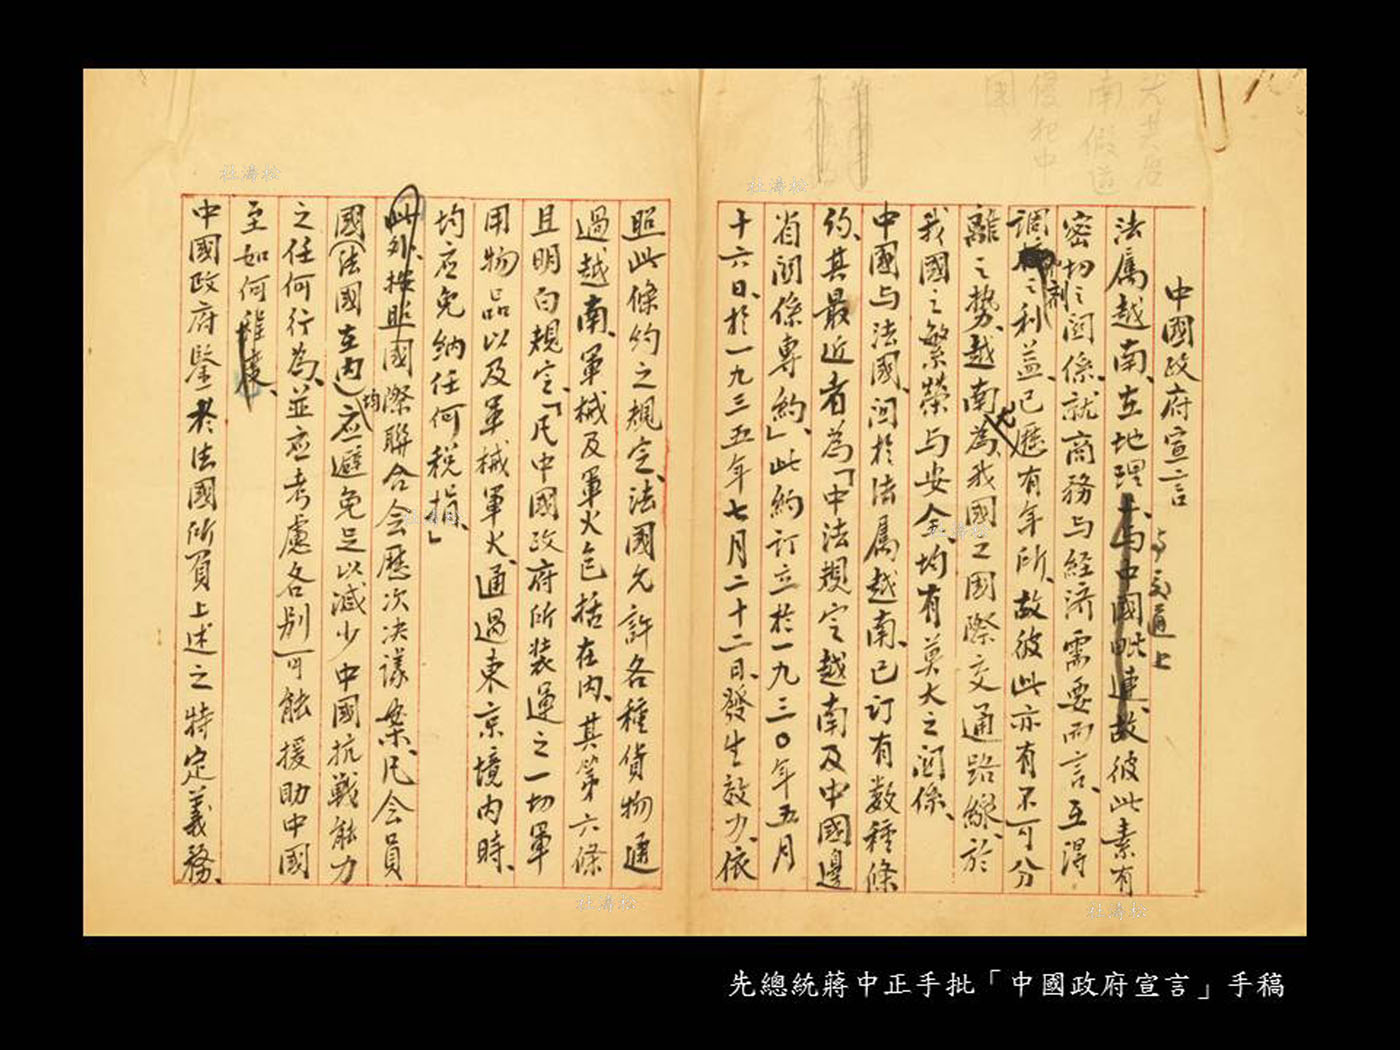 中國政府宣言
法屬越南、在地理上與中國毗連、故彼此素有
與交通上
密切之關係、就商務與經濟需要而言、互得
調劑之利益、已歷有年所、故彼此亦有不可分
離之勢、越南為我國之國際交通路線、於
我國之繁榮與安全、均有莫大之關係、
中國與法國、關於法屬越南、已訂有數種條
約、其最近者為「中法規定越南及中國邊
省關係專約」、此約訂立於一九三〇年五月
十六日、於一九三五年七月二十二日、發生效力、依
照此條約之規定、法國允許各種貨物通
過越南、軍械及軍火包括在內、其第六條
且明白規定、「凡中國政府所裝運之一切軍
用物品以及軍械軍火、通過東京境內時、
均應免納任何稅捐、」
此外、按照國際聯合會歷次決議案、凡會員
國(法國在內)均應避免足以減少中國抗戰能力
之任何行為、並應考慮各別可能援助中國
至如何程度、
中國政府鑒於法國所負上述之特定義務、
先總統蔣中正手批「中國政府宣言」手稿